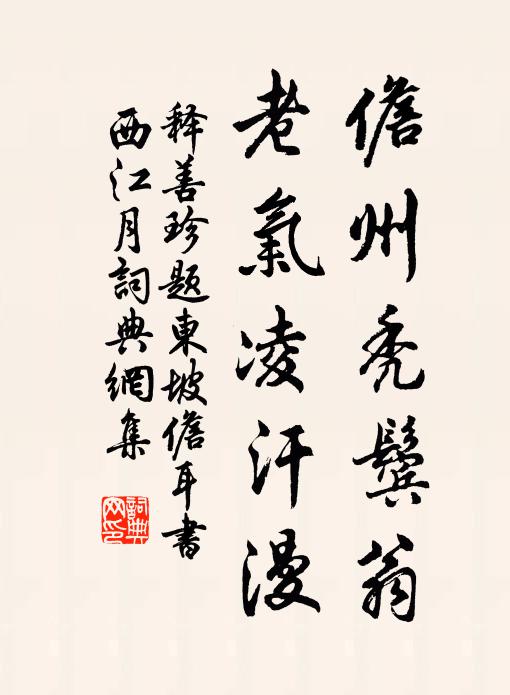 儋州秃鬓翁
老氣凌汗漫
释善珍题東坡儋耳書
西江月詞典網集
詞典网印